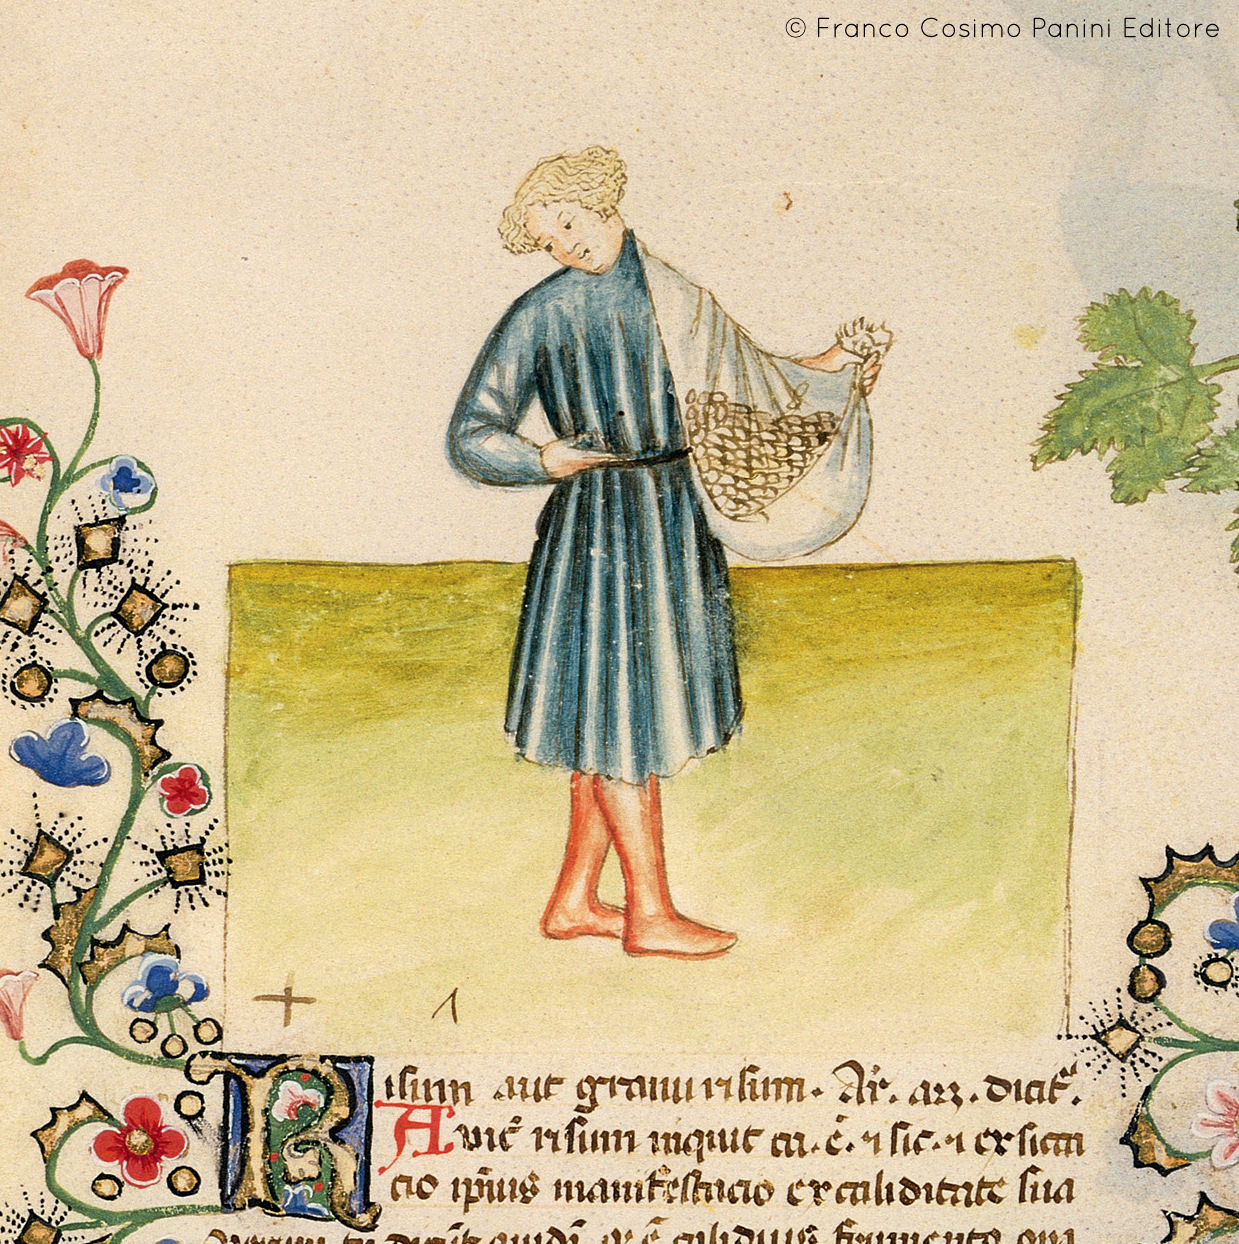 © Franco Cosimo Panini Editore
Risum aut granum risum. Ar̃. arz. dicit̃.
Avic̃ risum inquit ca. ẽ. ⁊ sic. ⁊ exsicca
cio ip̃ius manifestacio ex caliditate sua
frumento